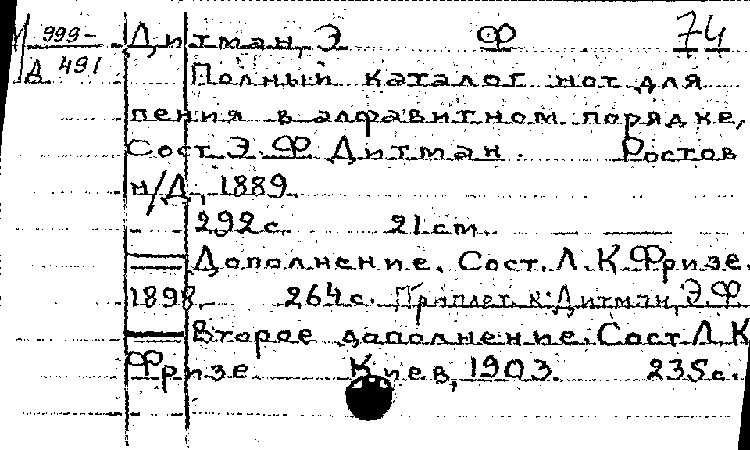 999- Дитман, Э Ф 74
Д 491 Полный каталог нот для
пения в алфавитном порядке,
Сост. Э. Ф Дитман. Ростов
н/Д, 1889.
292 с. 21 cm.
Дополнение. Сост. Л. К. Фризе.
1898. 264 с. Приплет. к: Дитман, Э. Ф
Второе дополнение. Сост Л. К
Фризе. Киев, 1903. 235 с.